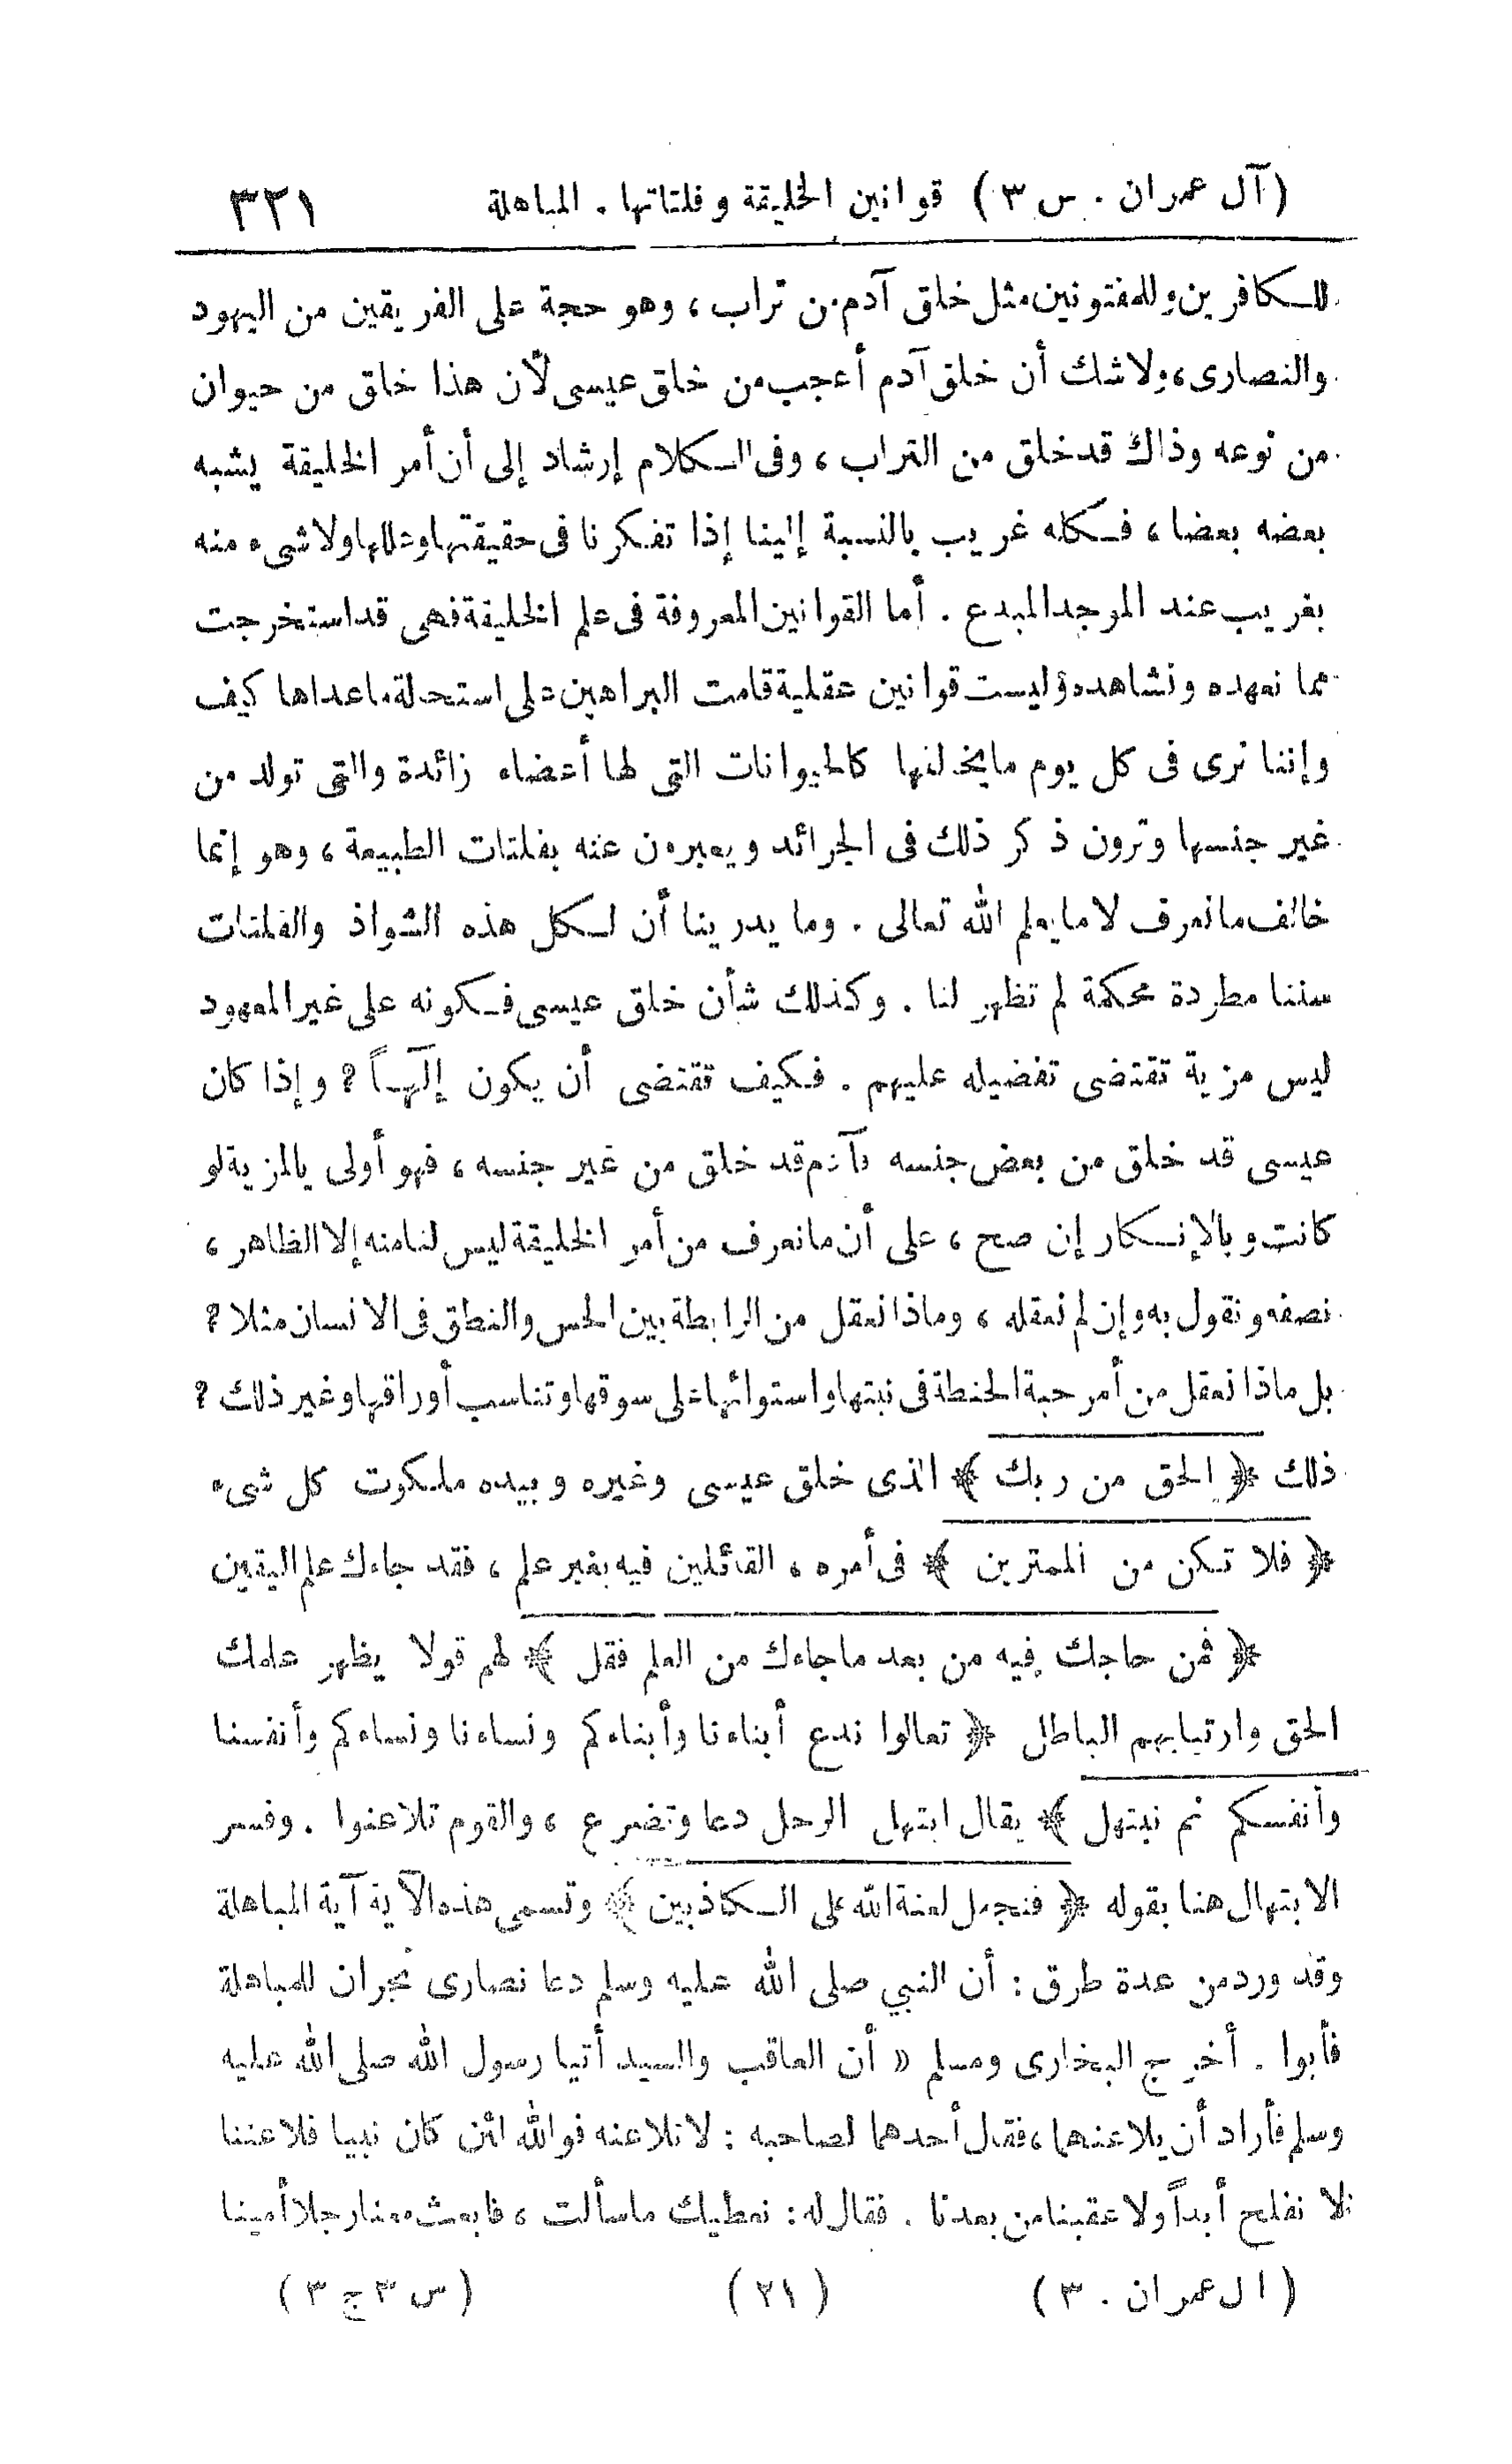 (آل عمران . س ٣) قوانين الخليقة وفلتاتها . المباهلة ٣٢١
للكافرين وللمفتونين مثل خلق آدم من تراب ، وهو حجة على الفريقين من اليهود
والنصارى ، ولا شك أن خلق آدم أعجب من خلق عيسى لأن هذا خلق من حيوان
من نوعه وذاك قد خلق من التراب ، وفى الكلام إرشاد إلى أن أمر الخليقة يشبه
بعضه بعضا ، فكله غريب بالنسبة إلينا إذا تفكرنا فى حقيقتها وعللها ولا شىء منه
بغريب عند الموجد المبدع . أما القوانين المعروفة فى علم الخليقة فهى قد استخرجت
مما نعهده ونشاهده وليست قوانين عقلية قامت البراهين على استحالة ما عداها كيف
وإننا نرى فى كل يوم ما يخالفها كالحيوانات التى لها أعضاء زائدة والتى تولد من
غير جنسها وترون ذكر ذلك فى الجرائد ويعبرون عنه بفلتات الطبيعة ، وهو إنما
خالف ما نعرف لا ما يعلم الله تعالى . وما يدرينا أن لكل هذه الشواذ والفلتات
سننا مطردة محكمة لم تظهر لنا . وكذلك شأن خلق عيسى فكونه على غير المعهود
ليس مزية تقتضى تفضيله عليهم . فكيف تقتضى أن يكون إلهاً ؟ وإذا كان
عيسى قد خلق من بعض جنسه فآدم قد خلق من غير جنسه ، فهو أولى بالمزية لو
كانت وبالإنكار إن صح ، على أن ما نعرف من أمر الخليقة ليس لنا منه إلا الظاهر ،
نصفه ونقول به وإن لم نعقله ، وماذا نعقل من الرابطة بين الحس والنطق فى الانسان مثلا ؟
بل ماذا نعقل من أمر حبة الحنطة فى نبتها واستوائها على سوقها وتناسب أوراقها وغير ذلك ؟
ذلك ﴿ الحق من ربك ﴾ الذى خلق عيسى وغيره وبيده ملكوت كل شىء
﴿ فلا تكن من الممترين ﴾ فى أمره ، القائلين فيه بغير علم ، فقد جاءك علم اليقين
﴿ فمن حاجك فيه من بعد ما جاءك من العلم فقل ﴾ لهم قولا يظهر علمك
الحق وارتيابهم الباطل ﴿ تعالوا ندع أبناءنا وأبناءكم ونساءنا ونساءكم وأنفسنا
وأنفسكم ثم نبتهل ﴾ يقال ابتهل الرجل دعا وتضرع ، والقوم تلاعنوا . وفسر
الابتهال هنا بقوله ﴿ فنجعل لعنة الله على الكاذبين ﴾ وتسمى هذه الآية آية المباهلة
وقد ورد من عدة طرق : أن النبي صلى الله عليه وسلم دعا نصارى نجران للمباهلة
فأبوا . أخرج البخارى ومسلم « أن العاقب والسيد أتيا رسول الله صلى الله عليه
وسلم فأراد أن يلاعنهما ، فقال أحدهما لصاحبه : لا تلاعنه فوالله لئن كان نبيا فلاعننا
لا نفلح أبداً ولا عقبنا من بعدنا . فقال له : نعطيك ما سألت ، فابعث معنا رجلا أمينا
(ال عمران . ٣) (٢١) (س ٣ ج ٣)